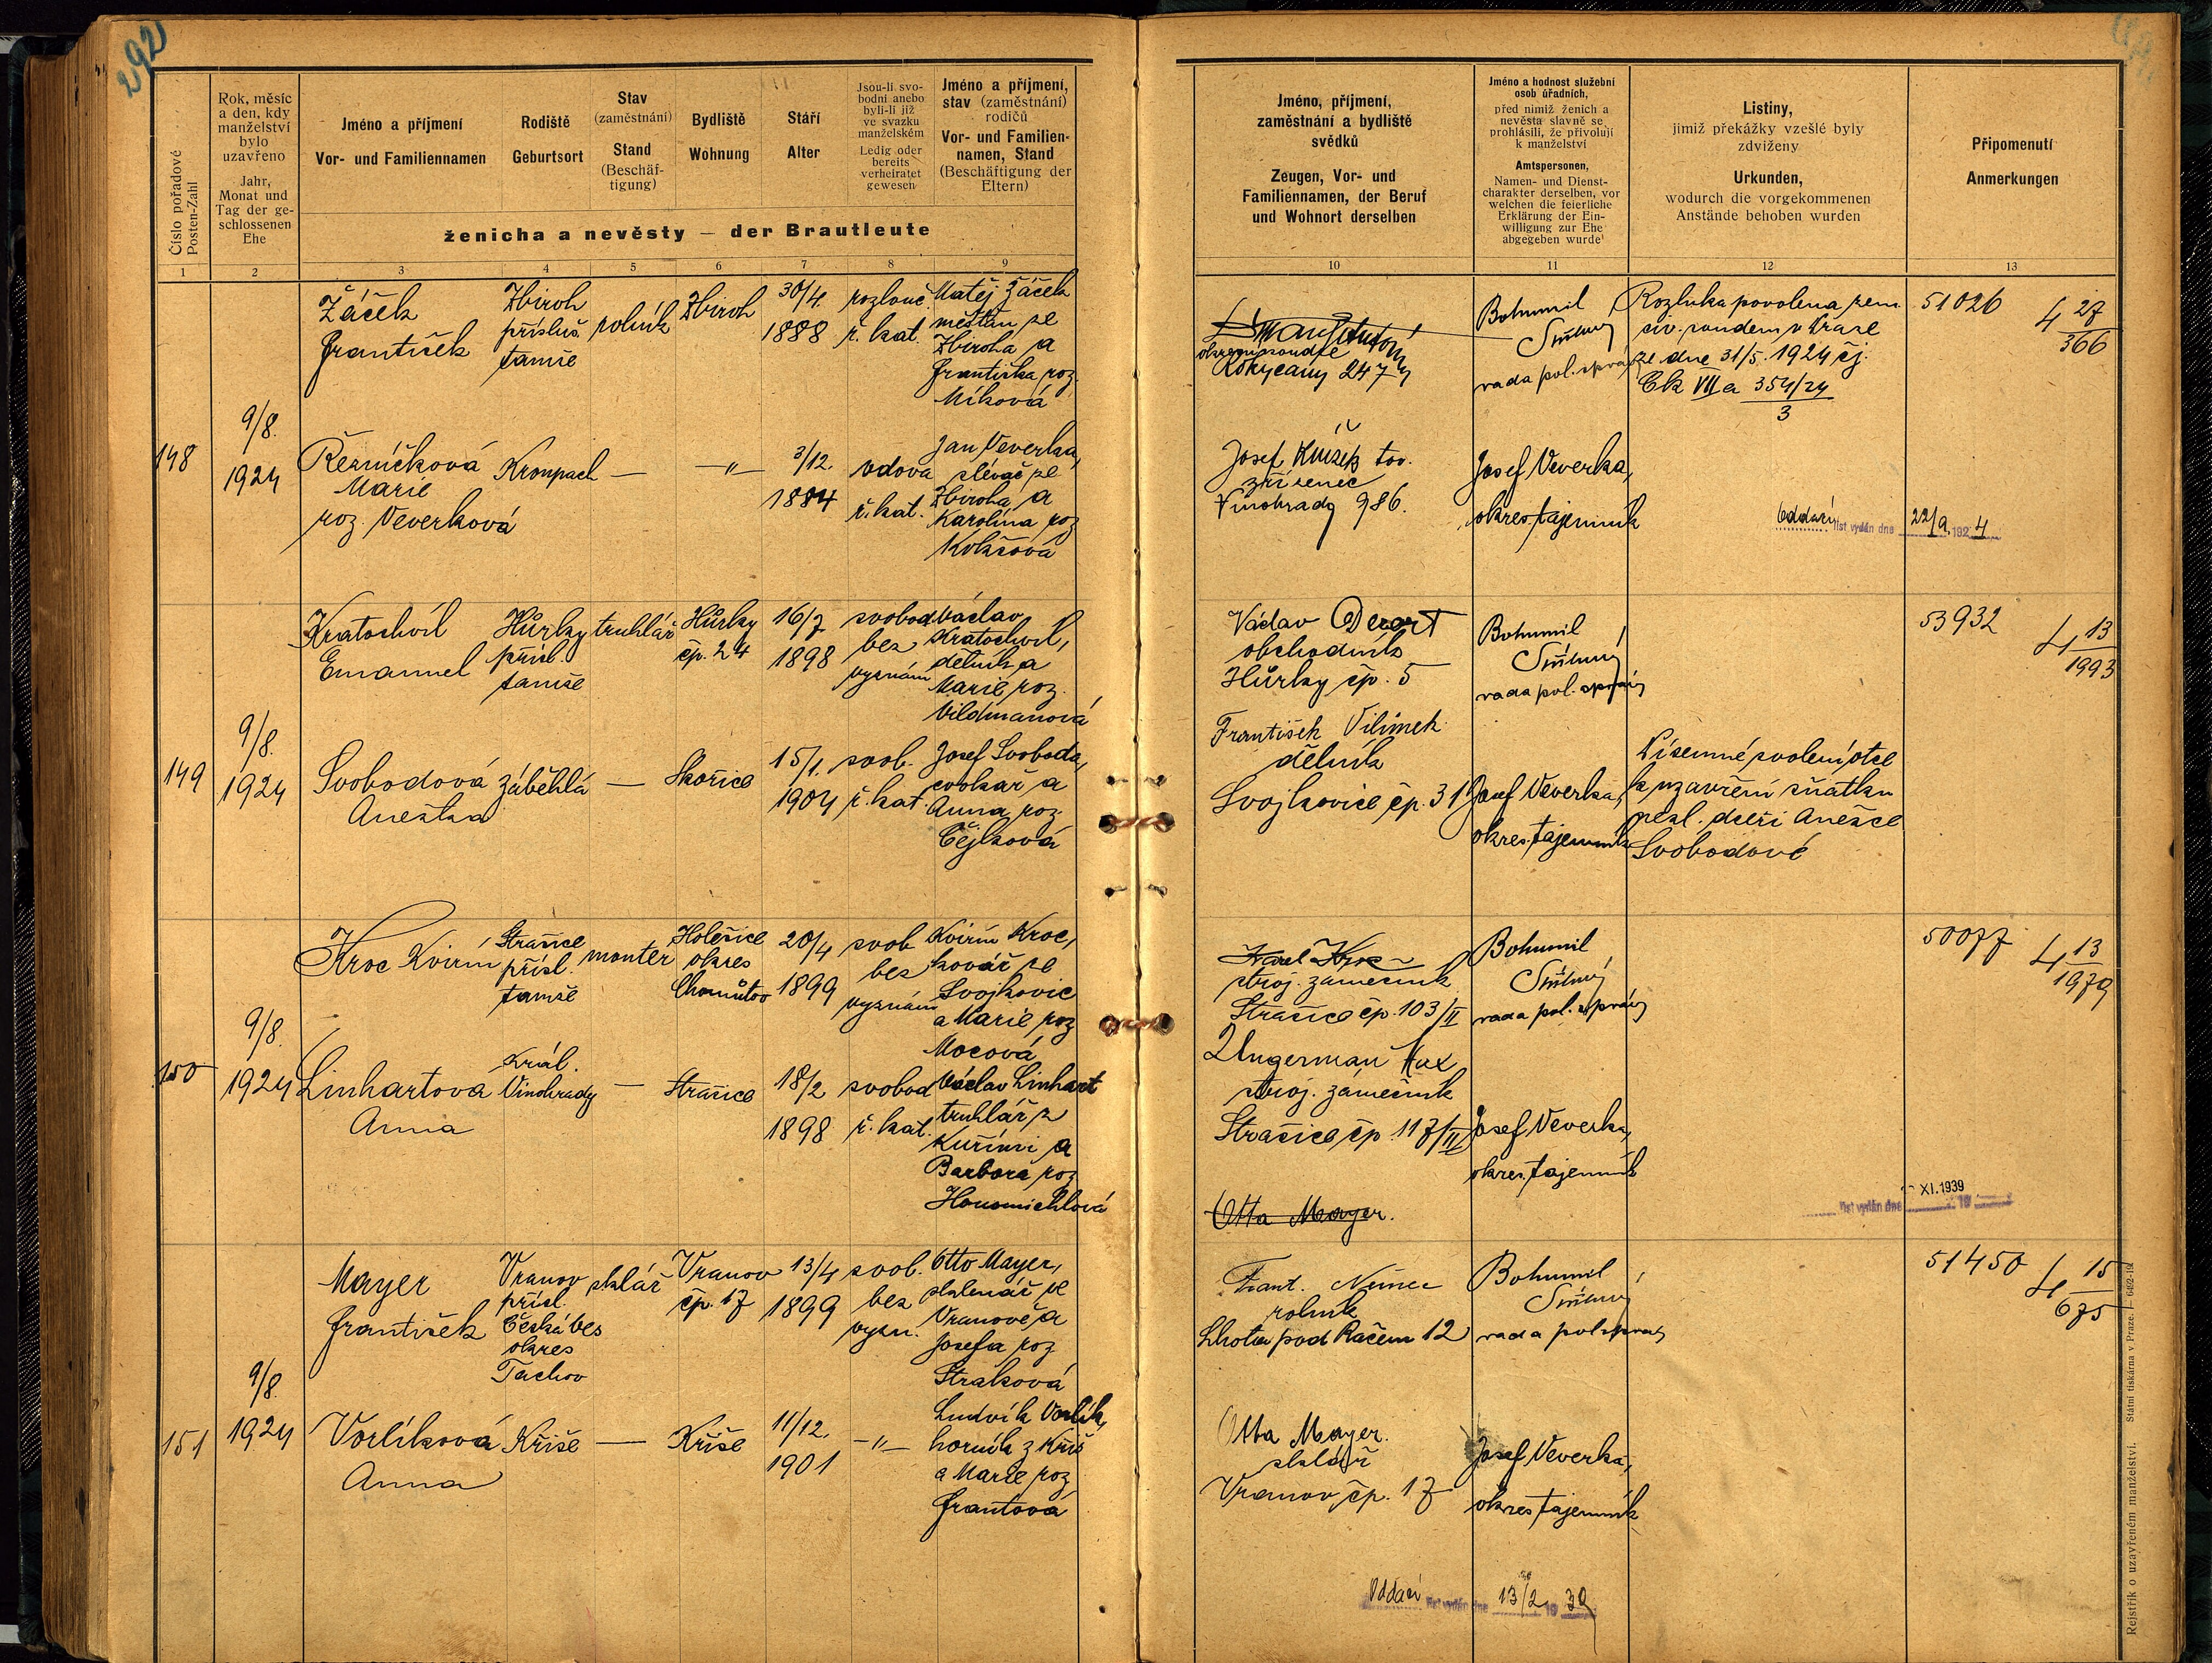 292
Číslo pořadové
Posten-Zahl
Rok, měsíc
a den, kdy
manželství
bylo
uzavřeno
Jahr,
Monat und
Tag der ge-
schlossenen
Ehe
Jméno a příjmení
Vor- und Familiennamen
Rodiště
Geburtsort
Stav
(zaměstnání)
Stand
(Beschäf-
tigung)
Bydliště
Wohnung
Stáří
Alter
Jsou-li svo-
bodni anebo
byli-li již
ve svazku
manželském
Ledig oder
bereits
verheiratet
gewesen
Jméno a příjmení,
stav (zaměstnání)
rodičů
Vor- und Familien-
namen, Stand
(Beschäftigung der
Eltern)
ženicha a nevěsty – der Brautleute
1 2 3 4 5 6 7 8 9
148
9/8.
1924
Žáček
František
Zbiroh
přísluš.
tamže
rolník
Zbiroh
30/4.
1888
rozlouč
ř. kat.
Matěj Žáček
měšťan ze
Zbiroha a
Františka roz.
Míková
Řezníčková
Marie
roz. Veverková
Krompach
—
—"—
3/12.
1884
vdova
ř. kat.
Jan Veverka,
slévač ze
Zbiroha a
Karolína roz
149
9/8.
1924
Kratochvíl
Emanuel
Hůrky
přísl.
tamže
truhlář
Hůrky
čp. 24
16/7
1898
svobod
bez
vyznám
Václav
Kratochvíl,
dělník a
Marie roz.
Vildmanová
Svobodová
Anežka
Záběhlá
—
Skořice
15/1.
1904
svob.
ř. kat.
Josef Svoboda,
cvokař a
Anna roz.
Čejková
150
9/8.
1924
Kroc Kvirín
Strašice
přísl.
tamže
monter
Holešice
okres
Chomutov
20/4
1899
svob
bez
vyznám
Kvirín Kroc,
kovář ze
Svojkovic
a Marie roz
Mocová
Linhartová
Anna
Král.
Vinohrady
—
Strašice
18/2
1898
svobod
ř. kat.
Václav Linhart
truhlář z
Kuřími a
Barbora roz
Honomichlová
151
9/8.
1924
Mayer
František
Vranov
přísl.
Česká Ves
okres
Tachov
sklář
Vranov
čp. 17
13/4
1899
svob.
bez
vyzn.
Otto Mayer,
sklenář ve
Vranově a
Josefa roz
Straková
Vorlíková
Anna
Kříše
—
Kříše
11/12.
1901
—"—
Ludvík Vorlík,
horník z Kříš
a Marie roz
Frantová
Jméno, příjmení,
zaměstnání a bydliště
svědků
Zeugen, Vor- und
Familiennamen, der Beruf
und Wohnort derselben
Jméno a hodnost služební
osob úřadních,
před nimiž ženich a
nevěsta slavně se
prohlásili, že přivolují
k manželství
Amtspersonen,
Namen- und Dienst-
charakter derselben, vor
welchen die feierliche
Erklärung der Ein-
willigung zur Ehe
abgegeben wurde
Listiny,
jimiž překážky vzešlé byly
zdviženy
Urkunden,
wodurch die vorgekommenen
Anstände behoben wurden
Připomenutí
Anmerkungen
10 11 12 13
Rokycany 247
Bohumil
rada pol. správy
Rozluka povolena zem
civ. soudem v Praze
ze dne 31/5. 1924 čj.
Ck VII a 354/24
3
51026
4 27
366
Josef Knížek tov.
zřízenec
Vinohrady 986.
Josef Veverka,
okres. tajemník
Oddací list vydán dne 22/9. 1924
Václav
obchodník
Hůrky čp. 5
Bohumil
rada pol. správy
53932
4 13
1993
František Vilímek
dělník
Svojkovice čp. 31
Josef Veverka,
okres. tajemník
Písemné svolení otce
k uzavření sňatku
nezl. dceři Anežce
Svobodové
Karel Kroc
stroj. zámečník
Strašice čp. 103/II
Bohumil
rada pol. správy
50077
4 13
1979
Ungerman Max
stroj. zámečník
Strašice čp. 117/II
Josef Veverka,
okres. tajemník
XI. 1939
list vydán dne 19
Otta Mayer.
Frant. Němec
rolník
Lhota pod Račem 12
Bohumil
rada pol. správy
51450
4 15
675
Otta Mayer.
sklář
Vranov čp. 17
Josef Veverka,
okres. tajemník
Oddací list vydán dne 13/2 1939
Rejstřík o uzavřeném manželství. Státní tiskárna v Praze.